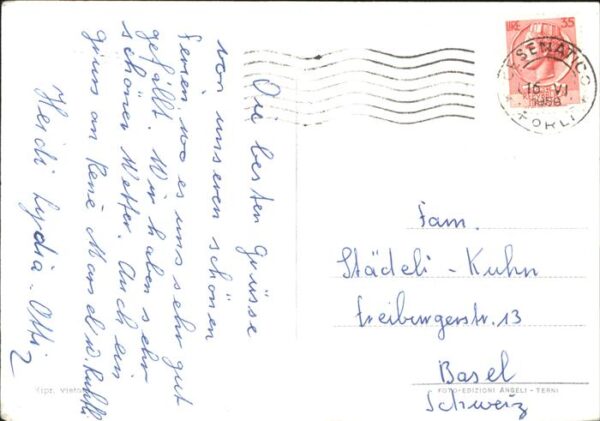 Die besten grüsse
von unseren schönen
Ferien, wo es uns sehr gut
gefällt. Wir haben sehr
schönes Wetter. Auch ein
gruss an René Marcel u. Ruthli.
Heidi Lydia. Otti
LIRE 35
CESENATICO
16 VI
1959
FORLI
Fam.
Städeli - Kuhn
Freiburgerstr. 13
Basel
Schweiz
FOTO-EDIZIONI ANGELI - TERNI
Ripr. vietata